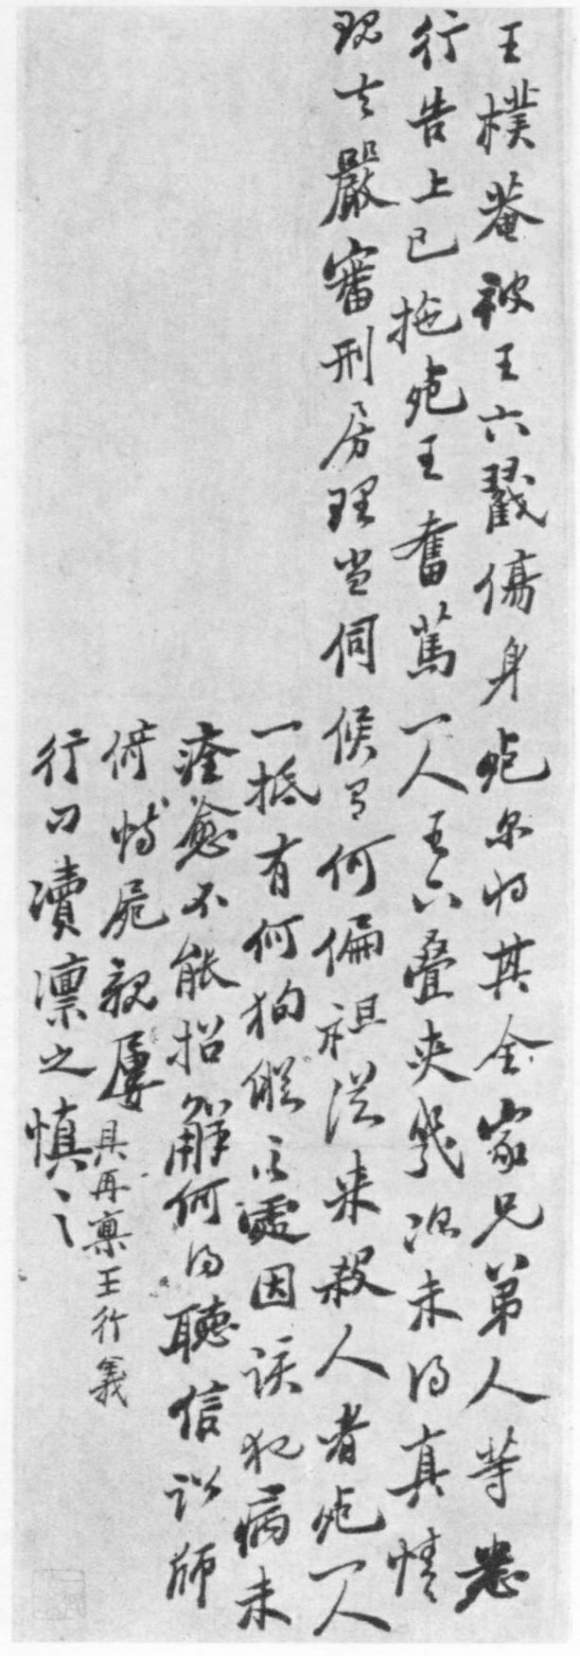 王樸菴被王六戳傷身死尔將其全家兄弟人等悉
行告上已拖死王奮篤一人王六叠夾幾次未得真情
現在嚴審刑房理當伺候有何偏袒從來殺人者死一人
一抵有何狗縱之處因該犯病未
痊愈不能招解何得聽信訟師
俯恃屍親屢
行曰瀆凜之慎之
具再稟王行義